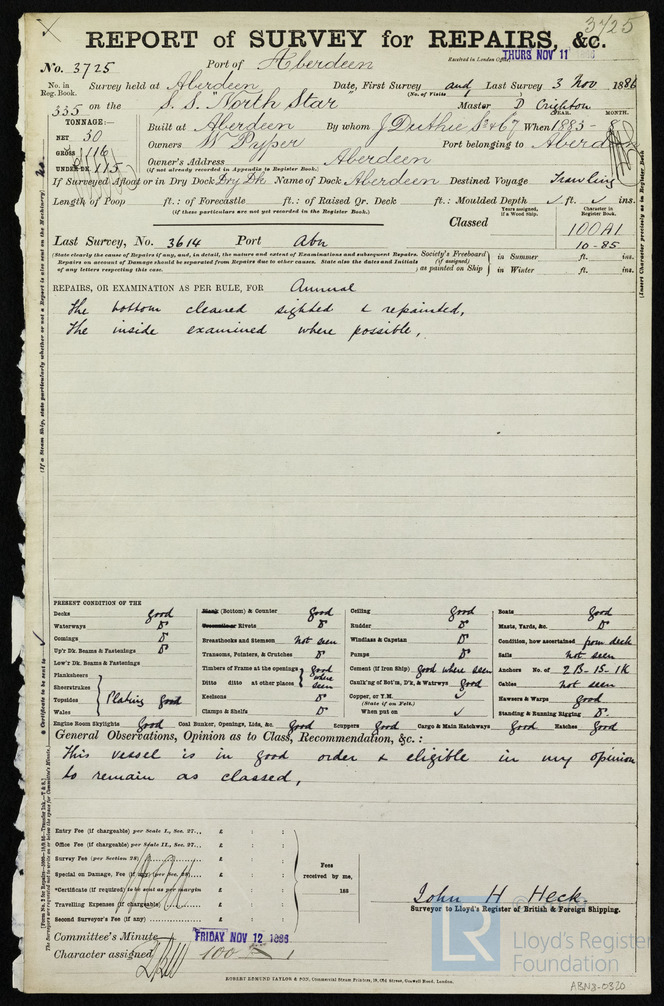 3725
REPORT of SURVEY for REPAIRS, &c.
No. 3725 Port of Aberdeen Received in London Office THURS NOV 11
No. in Reg. Book. Survey held at Aberdeen Date, First Survey and Last Survey 3 Nov 1886
(No. of Visits )
335 on the S. S. "North Star" Master D Crighton
TONNAGE:— YEAR. MONTH.
NET 30 Built at Aberdeen By whom J Duthie Sons & Co When 1883 - 8
GROSS 116 Owners W Pyper Port belonging to Aberd
UNDER DK 115 Owner's Address Aberdeen
(If not already recorded in Appendix to Register Book.)
If Surveyed Afloat or in Dry Dock Dry Dk Name of Dock Aberdeen Destined Voyage Trawling
Length of Poop ft.: of Forecastle ft.: of Raised Qr. Deck ft.: Moulded Depth ✓ ft. ✓ ins.
(If these particulars are not yet recorded in the Register Book.)
Years assigned, if a Wood Ship. Character in Register Book.
Classed 100A1
10-85
Last Survey, No. 3614 Port Abn
(State clearly the cause of Repairs if any, and, in detail, the nature and extent of Examinations and subsequent Repairs. Repairs on account of Damage should be separated from Repairs due to other causes. State also the dates and Initials of any letters respecting this case.
Society's Freeboard (if assigned) as painted on Ship in Summer ft. ins.
in Winter ft. ins.
REPAIRS, OR EXAMINATION AS PER RULE, FOR Annual
The bottom cleaned sighted & repainted,
The inside examined where possible,
PRESENT CONDITION OF THE
Decks good
Waterways Do
Comings Do
Up'r Dk. Beams & Fastenings Do
Low'r Dk. Beams & Fastenings
Planksheers
Sheerstrakes
Topsides Plating good
Wales
Plank (Bottom) & Counter good
Treenails or Rivets Do
Breasthooks and Stemson Not seen
Transoms, Pointers, & Crutches Do
Timbers of Frame at the openings good where seen
Ditto ditto at other places
Keelsons Do
Clamps & Shelfs Do
Ceiling good
Rudder Do
Windlass & Capstan Do
Pumps Do
Cement (if Iron Ship) good where seen
Caulk'ng of Bot'm, D'k, & Watrwys good
Copper, or Y.M. ✓
(State if on Felt.)
When put on ✓
Boats good
Masts, Yards, &c. Do
Condition, how ascertained from deck
Sails Not seen
Anchors No. of 2B-1S-1K
Cables Not seen
Hawsers & Warps good
Standing & Running Rigging Do.
Engine Room Skylights Good Coal Bunker, Openings, Lids, &c. Good Scuppers Good Cargo & Main Hatchways Good Hatches Good
General Observations, Opinion as to Class, Recommendation, &c.:
This vessel is in good order & eligible in my opinion
to remain as classed,
Entry Fee (if chargeable) per Scale I., Sec. 27... £ : :
Office Fee (if chargeable) per Scale II., Sec. 27... £ : :
Survey Fee (per Section 28) £ : :
Special on Damage, Fee (if any) (per Sec. 28) £ : :
*Certificate (if required) to be sent as per margin £ : :
Travelling Expenses (if chargeable) £ : :
Second Surveyor's Fee (if any) £ : :
Fees received by me, 188
John H Heck.
Surveyor to Lloyd's Register of British & Foreign Shipping.
Committee's Minute FRIDAY NOV 12 1886
Character assigned 100 A 1
ROBERT EDMUND TAYLOR & SON, Commercial Steam Printers, 19, Old Street, Goswell Road, London.
LR Lloyd's Register Foundation
ABN3-0320